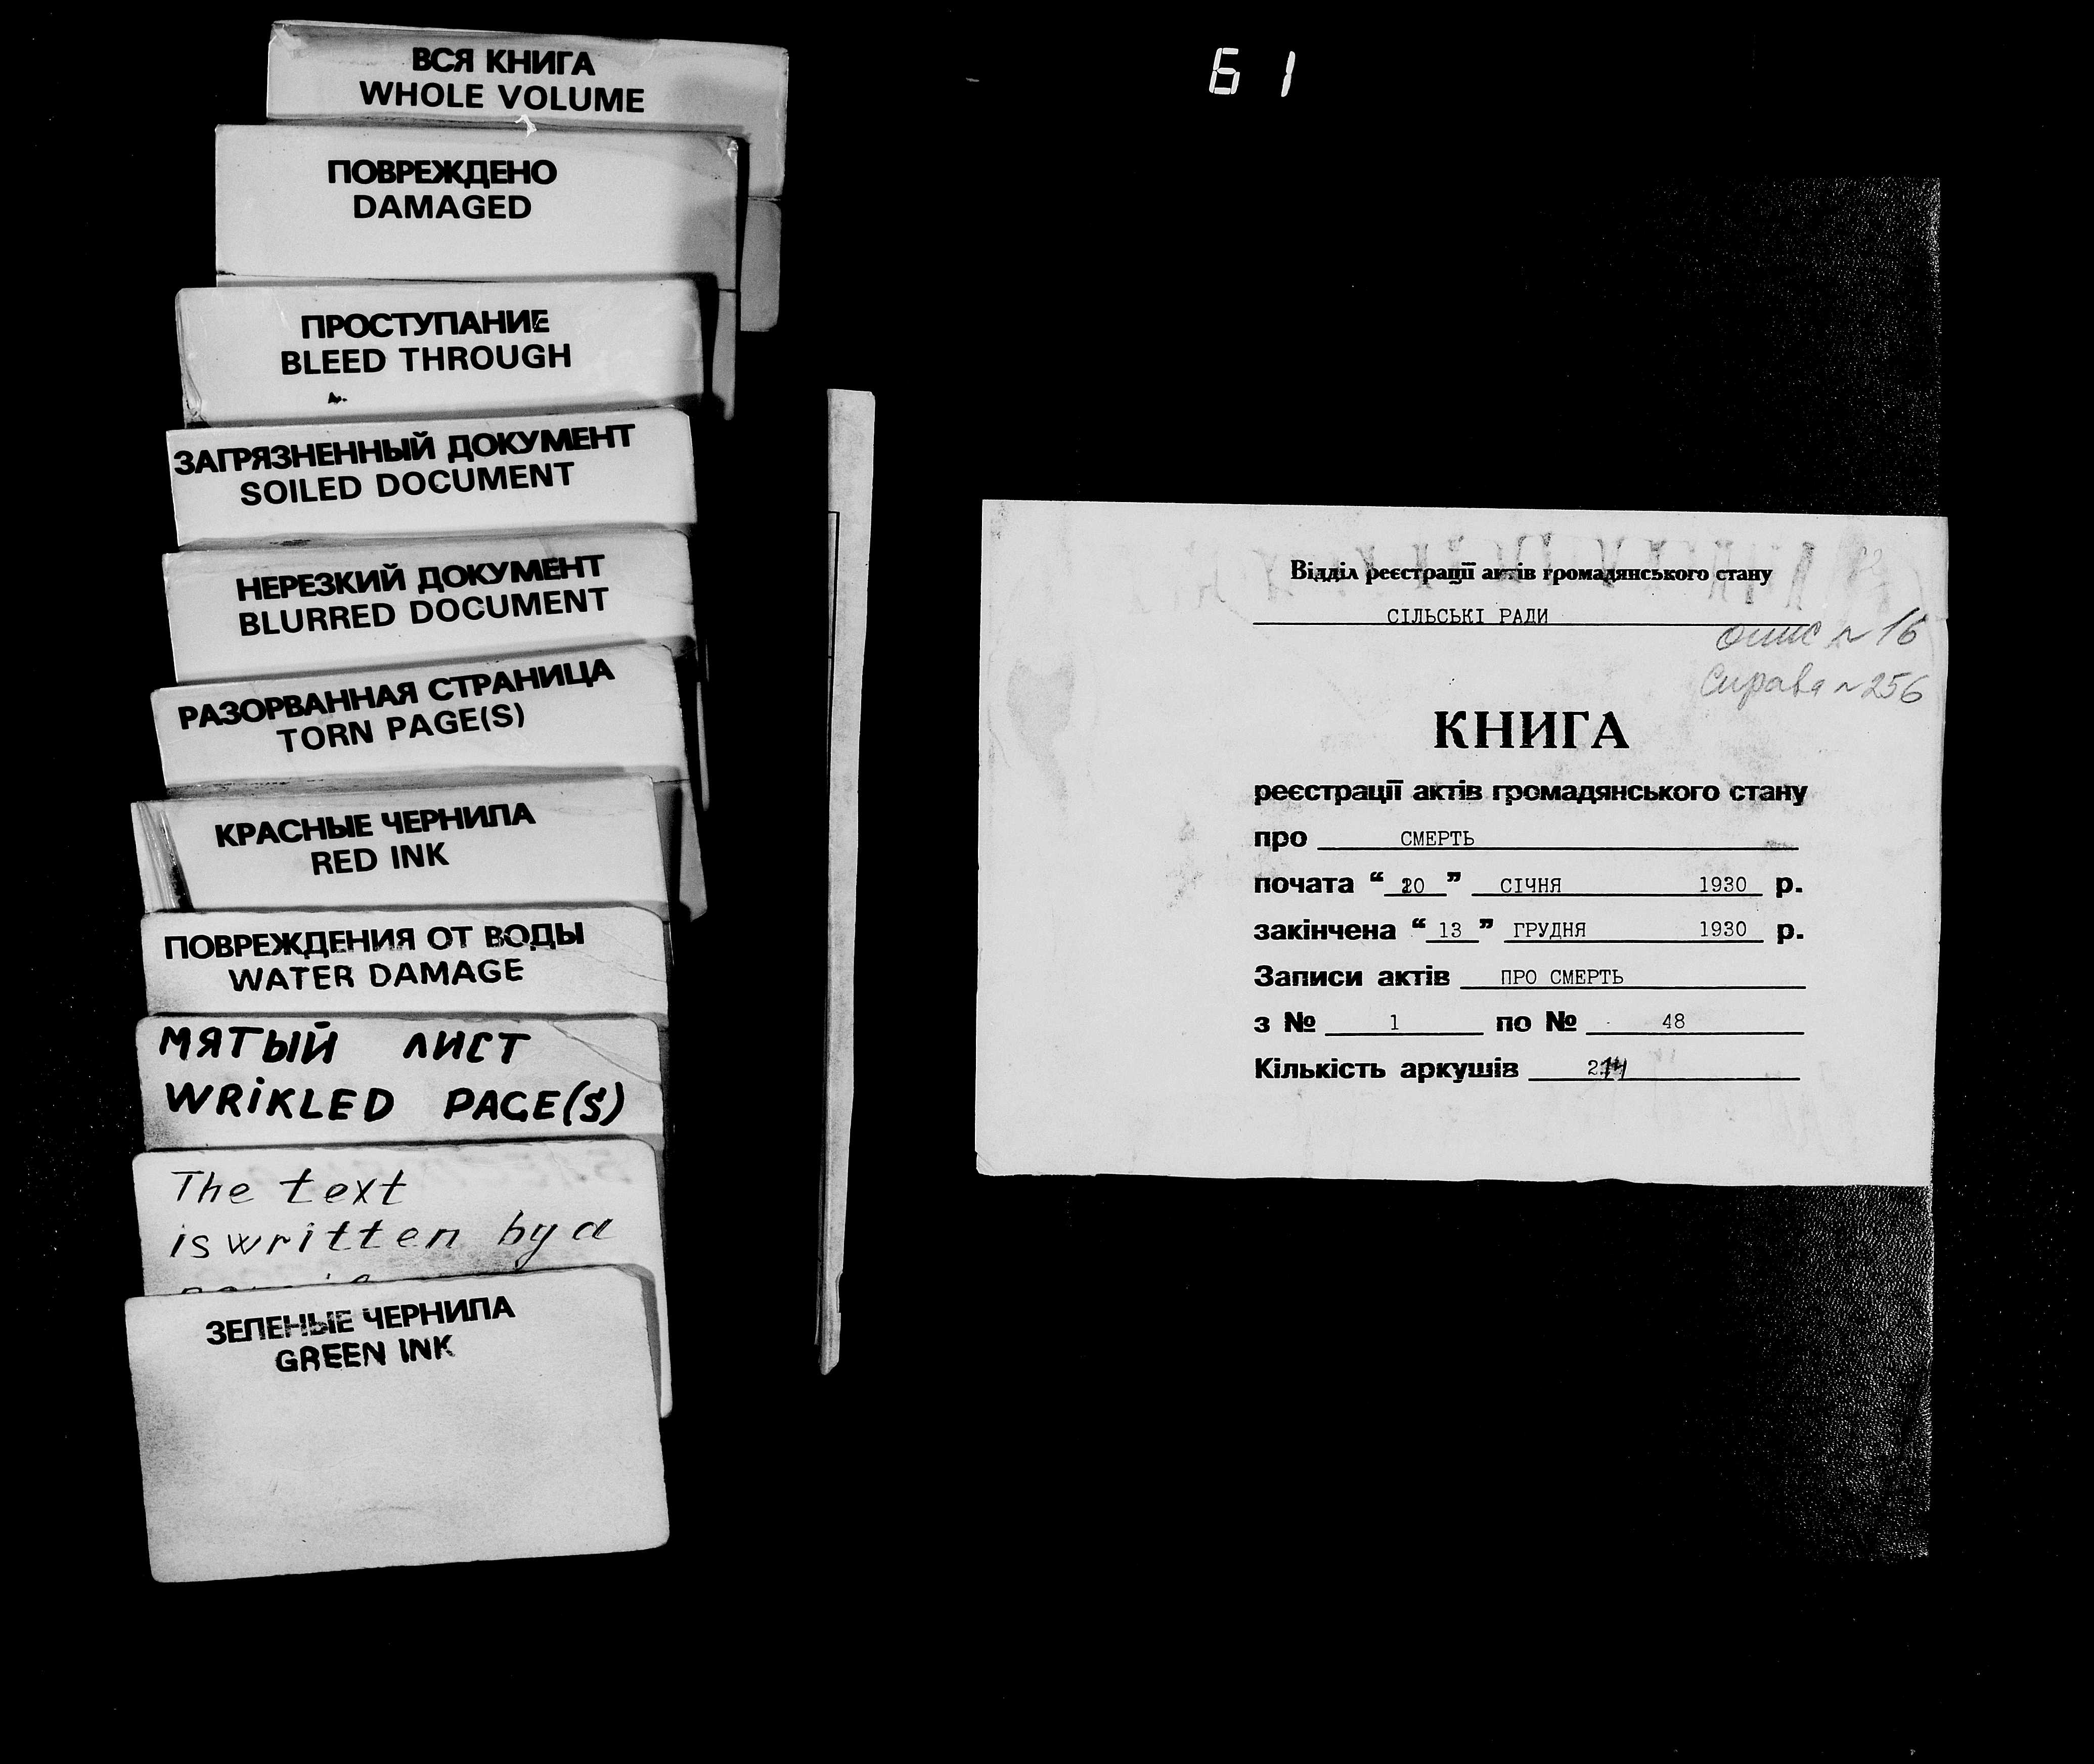 ВСЯ КНИГА
WHOLE VOLUME
ПОВРЕЖДЕНО
DAMAGED
ПРОСТУПАНИЕ
BLEED THROUGH
ЗАГРЯЗНЕННЫЙ ДОКУМЕНТ
SOILED DOCUMENT
НЕРЕЗКИЙ ДОКУМЕНТ
BLURRED DOCUMENT
РАЗОРВАННАЯ СТРАНИЦА
TORN PAGE(S)
КРАСНЫЕ ЧЕРНИЛА
RED INK
ПОВРЕЖДЕНИЯ ОТ ВОДЫ
WATER DAMAGE
МЯТЫЙ ЛИСТ
WRiKLED PAGE(S)
The text
is written by a
ЗЕЛЕНЫЕ ЧЕРНИЛА
GREEN INK
61
Відділ реєстрації актів громадянського стану
СІЛЬСЬКІ РАДИ
опис N 16
Справа N 256
КНИГА
реєстрації актів громадянського стану
про СМЕРТЬ
почата “ 20 ” СІЧНЯ 1930 р.
закінчена “ 13 ” ГРУДНЯ 1930 р.
Записи актів ПРО СМЕРТЬ
з № 1 по № 48
Кількість аркушів